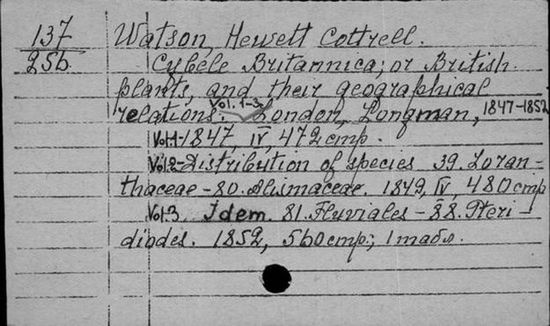 137
256
Watson, Hewett Cottrell.
Cybele Britannica; or British
plants, and their geographical
relations. Vol. 1-3. London, Longman, 1847-1852
Vol.1-1847, IV, 472 cmp.
Vol.2-Distribution of species 39. Loran-
thaceae-80. Alismaceae. 1849, IV, 480 cmp
Vol.3 Idem. 81. Fluviales-88. Pteri-
diodes. 1852, 560 cmp; 1 табл.